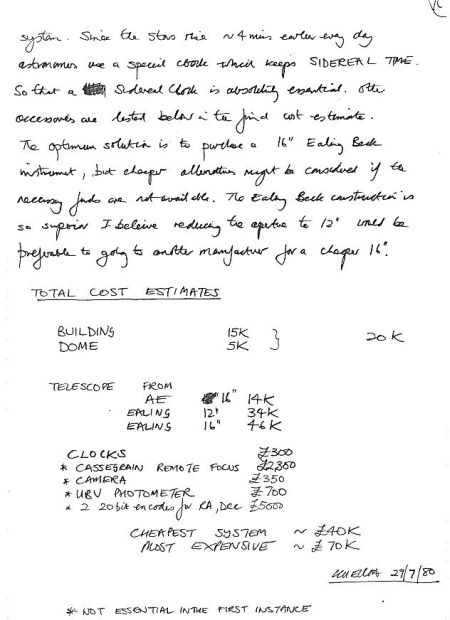 system. Since the stars rise ~ 4 mins earlier every day
astronomers use a special clock which keeps SIDEREAL TIME.
So that a Sidereal Clock is absolutely essential. Other
accessories are listed below in the final cost estimate.
The optimum solution is to purchase a 16" Ealing Beck
instrument, but cheaper alternatives might be considered if the
necessary funds are not available. The Ealing Beck construction is
so superior I beleive reducing the aperture to 12" would be
preferable to going to another manufacturer for a cheaper 16".
TOTAL COST ESTIMATES
BUILDING 15K } 20K
DOME 5K
TELESCOPE FROM
AE 16" 14K
EALING 12" 34K
EALING 16" 46K
CLOCKS £300
* CASSEGRAIN REMOTE FOCUS £2,300
* CAMERA £350
* UBV PHOTOMETER £700
* 2 20bit encoders for RA, Dec £5000
CHEAPEST SYSTEM ~ £40K
MOST EXPENSIVE ~ £70K
29/7/80
* NOT ESSENTIAL IN THE FIRST INSTANCE